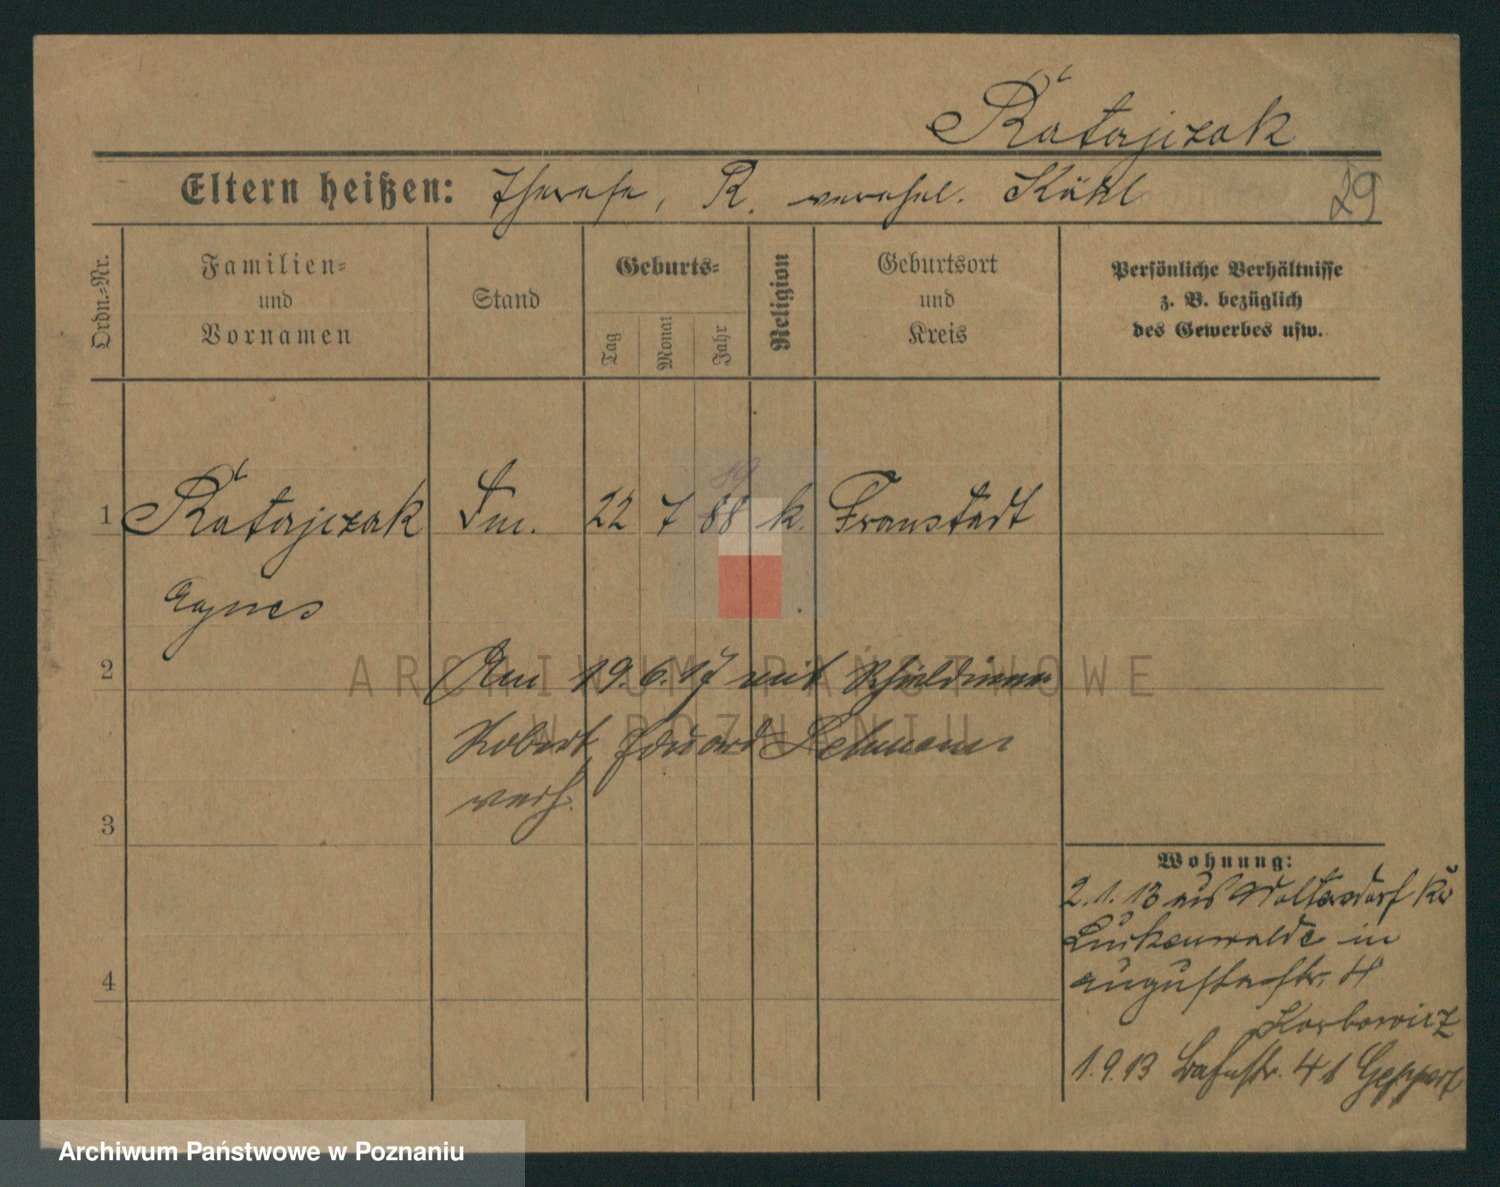 Ratajczak
Eltern heißen: Therese, R. verehel. Kühl
29
Ordn.-Nr.
Familien-
und
Vornamen
Stand
Geburts-
Tag
Monat
Jahr
Religion
Geburtsort
und
Kreis
Persönliche Verhältnisse
z. B. bezüglich
des Gewerbes usw.
89
1 Ratajczak 22 7 88 k. Fraustadt
Agnes
2
Am 19.6.17 mit
Robert Eduard Lehmann
verh.
3
Wohnung:
2.1.13 aus Woltersdorf Kr
Luckenwalde in
Augustastr. 4
Karbowicz
4
1.9.13 Bahnstr. 41 Geppert
ARCHIWUM PAŃSTWOWE
W POZNANIU
Archiwum Państwowe w Poznaniu